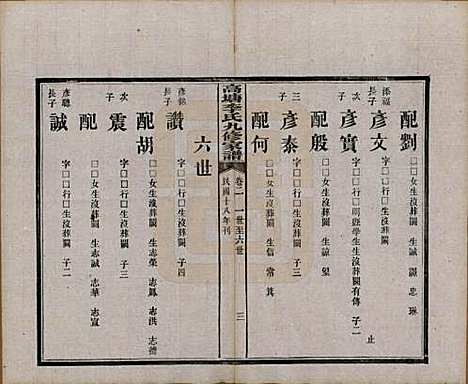 配劉 □□女生沒葬闕 生誠 讓 忠 琳
添福長子 彥文 字□□行□生沒葬闕 止
次子 彥實 字□□行□明經學生生沒葬闕有傳 子二
配殷 □□女生沒葬闕 生諒 望
三子 彥泰 字□□行□生沒葬闕 子三
配何 □□女生沒葬闕 生信 常 箕
高塘李氏九修家譜 卷二 一世至六世 三 民國十八年刊
六世
彥銘長子 讚 字□□行□生沒葬闕 子四
配胡 □□女生沒葬闕 生志榮 志鳳 志洪 志德
次子 震 字□□行□生沒葬闕 子三
配 □□女生沒葬闕 生志誠 志華 志宣
彥聰長子 誠 字□□行□生沒葬闕 子二